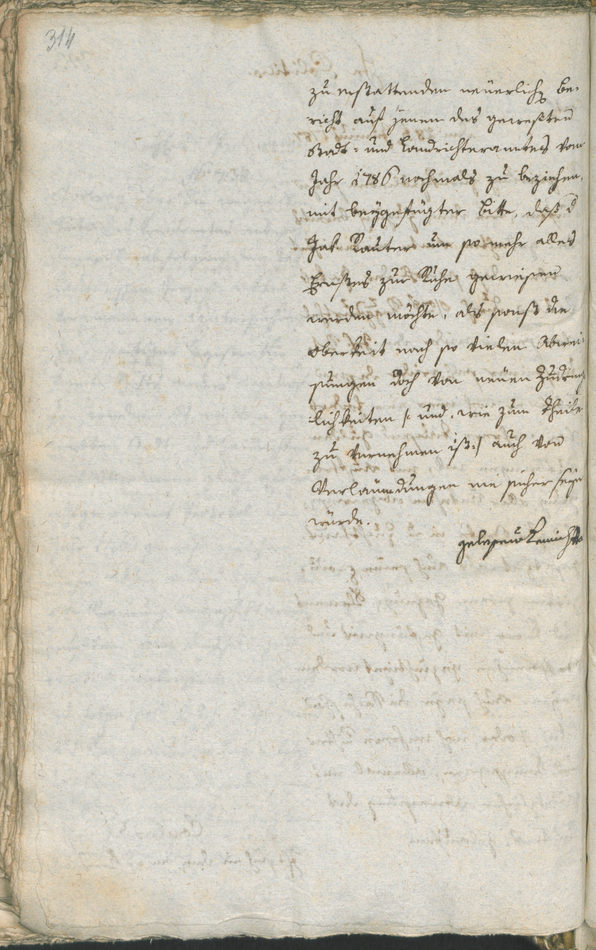 314
zu erstattenden neüerlich Be-
richt auf jenen des gewesten
Stadt- und Landrichteramtes vom
Jahr 1786 nochmals zu beziehen,
mit beygefügter Bitte, daß d
Jak Rauter um so mehr alles
Ernstes zur Ruhe gewiesen
werden möchte, als sonst die
Obrigkeit nach so vielen Abwei-
sungen doch von neüen Zudring-
lichkeiten /: und, wie zum Theile
zu vernehmen ist :/ auch von
Verläumdungen nie sicher seyn
würde.